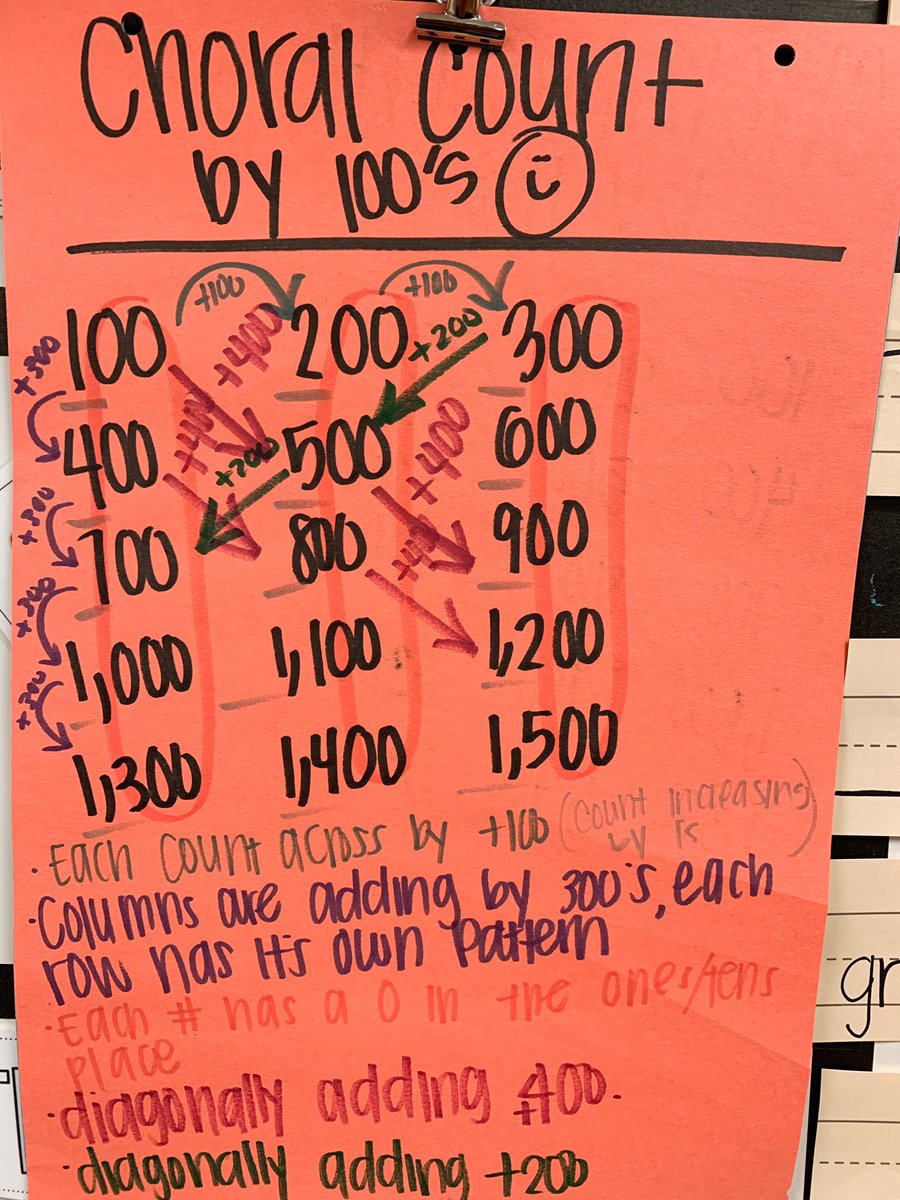 Choral Count
by 100's
+100 +100
100 200 300
+300 +400 +200
400 500 600
+300 +400 +200 +400
700 800 900
+300 +40
1,000 1,100 1,200
+300
1,300 1,400 1,500
· Each count across by +100 (count increasing
by 1s)
· Columns are adding by 300's, each
row has it's own pattern
· Each # has a 0 in the ones/tens
place
· diagonally adding +400.
· diagonally adding +200
gr